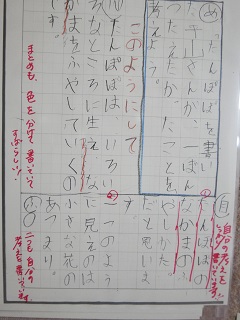 め「たんぽぽ」を書い
た平山さんが、ほん
つたえたかったことを
考えよう。
このようにして
たんぽぽは、いろい
ろなところに生え、な
かまをふやしていくの
です。
まとめも、色を分けて書いていて
すばらしい！
自分の考えを
しっかり書いています。
自
たんぽぽの
なかまの
やしかた
だと思いま
す。
一つのよう
に見えるのは
小さな花の
あつまり。
二つも自分の
考えを書いています